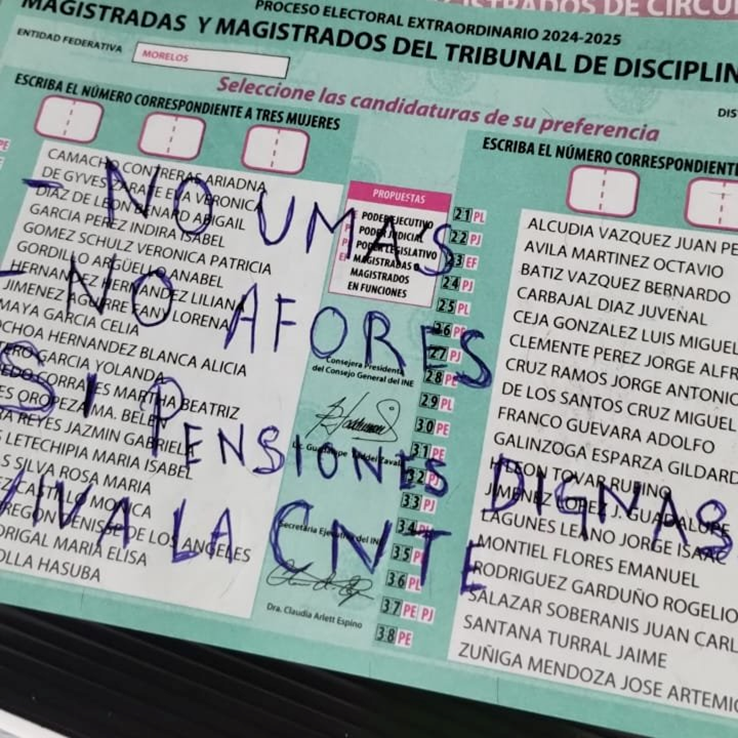 STRADOS DE CIRCU
PROCESO ELECTORAL EXTRAORDINARIO 2024-2025
MAGISTRADAS Y MAGISTRADOS DEL TRIBUNAL DE DISCIPLIN
ENTIDAD FEDERATIVA
MORELOS
DIS
Seleccione las candidaturas de su preferencia
ESCRIBA EL NÚMERO CORRESPONDIENTE A TRES MUJERES
CAMACHO CONTRERAS ARIADNA
DE GYVES ZARATE EVA VERONICA
DIAZ DE LEON BENARD ABIGAIL
GARCIA PEREZ INDIRA ISABEL
GOMEZ SCHULZ VERONICA PATRICIA
GORDILLO ARGÜELLO ANABEL
HERNANDEZ HERNANDEZ LILIANA
JIMENEZ AGUIRRE FANY LORENA
MAYA GARCIA CELIA
OCHOA HERNANDEZ BLANCA ALICIA
GARCIA YOLANDA
CORRALES MARTHA BEATRIZ
ES OROPEZA MA. BELEN
RA REYES JAZMIN GABRIELA
LETECHIPIA MARIA ISABEL
S SILVA ROSA MARIA
CASTILLO MONICA
REGON DENISSE DE LOS ANGELES
DRIGAL MARIA ELISA
OLLA HASUBA
PROPUESTAS
PODER EJECUTIVO
PODER JUDICIAL
PODER LEGISLATIVO
MAGISTRADAS O
MAGISTRADOS
EN FUNCIONES
Consejera Presidenta
del Consejo General del INE
Secretaria Ejecutiva del INE
Dra. Claudia Arlett Espino
ESCRIBA EL NÚMERO CORRESPONDIENTE
21 PL ALCUDIA VAZQUEZ JUAN PE
22 PJ AVILA MARTINEZ OCTAVIO
23 EF BATIZ VAZQUEZ BERNARDO
24 PJ CARBAJAL DIAZ JUVENAL
25 PL CEJA GONZALEZ LUIS MIGUEL
26 CLEMENTE PEREZ JORGE ALFR
27 PJ CRUZ RAMOS JORGE ANTONIO
28 DE LOS SANTOS CRUZ MIGUEL
29 PL FRANCO GUEVARA ADOLFO
30 PE GALINZOGA ESPARZA GILDARD
31 PE TOVAR RUFINO
32 JIMENEZ J. GUADALUPE
33 PJ LAGUNES LEANO JORGE ISAAC
34 MONTIEL FLORES EMANUEL
35 PJ RODRIGUEZ GARDUÑO ROGELIO
36 PL SALAZAR SOBERANIS JUAN CARL
37 PE PJ SANTANA TURRAL JAIME
38 PE ZUÑIGA MENDOZA JOSE ARTEMIO
- NO UMAS
- NO AFORES
SI PENSIONES DIGNAS
VIVA LA CNTE